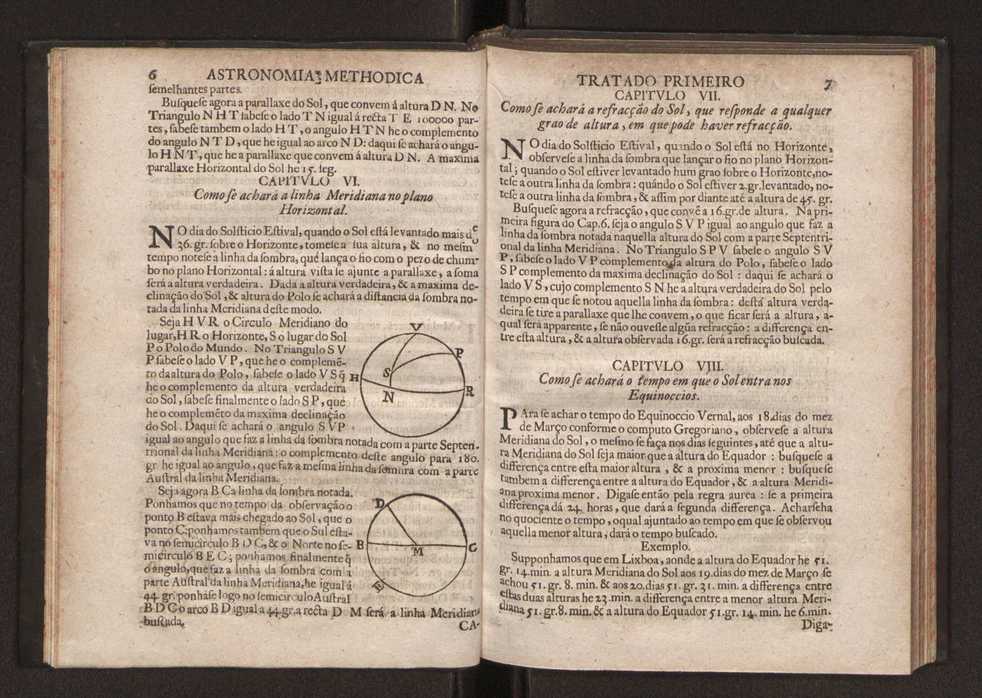 6 ASTRONOMIA METHODICA
semelhantes partes.
Busquese agora a parallaxe do Sol, que convem á altura D N. No
Triangulo N H T sabese o lado T N igual á recta T E 100000 par-
tes, sabese tambem o lado H T, o angulo H T N he o complemento
do angulo N T D, que he igual ao arco N D: daqui se achará o angu-
lo H N T, que he a parallaxe que convem á altura D N. A maxima
parallaxe Horizontal do Sol he 15. seg.
CAPITVLO VI.
Como se achará a linha Meridiana no plano
Horizontal.
NO dia do Solsticio Estival, quando o Sol está levantado mais de
36. gr. sobre o Horizonte, tomese a sua altura, & no mesmo
tempo notese a linha da sombra, que lança o fio com o pezo de chum-
bo no plano Horizontal: á altura vista se ajunte a parallaxe, a soma
será a altura verdadeira. Dada a altura verdadeira, & a maxima de-
clinação do Sol, & altura do Polo se achará a distancia da sombra no-
tada da linha Meridiana deste modo.
Seja H V R o Circulo Meridiano do
lugar, H R o Horizonte, S o lugar do Sol
P o Polo do Mundo. No Triangulo S V
P sabese o lado V P, que he o complemẽ-
to da altura do Polo, sabese o lado V S q̃
he o complemento da altura verdadeira
do Sol, sabese finalmente o lado S P, que
he o complemẽto da maxima declinação
do Sol. Daqui se achará o angulo S V P
igual ao angulo que faz a linha da sombra notada com a parte Septen-
trional da linha Meridiana: o complemento deste angulo para 180.
gr. he igual ao angulo, que faz a mesma linha da sombra com a parte
Austral da linha Meridiana.
Seja agora B C a linha da sombra notada.
Ponhamos que no tempo da observação o
ponto B estava mais chegado ao Sol, que o
ponto C: ponhamos tambem que o Sul esta-
va no semicirculo B D C, & o Norte no se-
micirculo B E C; ponhamos finalmente q̃
o angulo, que faz a linha da sombra com a
parte Austral da linha Meridiana, he igual á
44. gr. ponhase logo no semicirculo Austral
B D C o arco B D igual a 44. gr. a recta D M será a linha Meridiana
buscada.
CA-
V
P
S
H
N
R
D
B
M
C
E
TRATADO PRIMEIRO 7
CAPITVLO VII.
Como se achará a refracção do Sol, que responde a qualquer
grao de altura, em que pode haver refracção.
NO dia do Solsticio Estival, quando o Sol está no Horizonte,
observese a linha da sombra que lançar o fio no plano Horizon-
tal; quando o Sol estiver levantado hum grao sobre o Horizonte, no-
tese a outra linha da sombra: quando o Sol estiver 2. gr. levantado, no-
tese a outra linha da sombra, & assim por diante até a altura de 45. gr.
Busquese agora a refracção, que convẽ a 16. gr. de altura. Na pri-
meira figura do Cap. 6. seja o angulo S V P igual ao angulo que faz a
linha da sombra notada naquella altura do Sol com a parte Septentri-
onal da linha Meridiana. No Triangulo S P V sabese o angulo S V
P, sabese o lado V P complemento da altura do Polo, sabese o lado
S P complemento da maxima declinação do Sol: daqui se achará o
lado V S, cujo complemento S N he a altura verdadeira do Sol pelo
tempo em que se notou aquella linha da sombra: destá altura verda-
deira se tire a parallaxe que lhe convem, o que ficar será a altura, a-
qual será apparente, se não ouvesse algũa refracção: a differença en-
tre esta altura, & a altura observada 16. gr. será a refracção buscada.
CAPITVLO VJII.
Como se achará o tempo em que o Sol entra nos
Equinoccios.
PAra se achar o tempo do Equinoccio Vernal, aos 18. dias do mez
de Março conforme o computo Gregoriano, observese a altura
Meridiana do Sol, o mesmo se faça nos dias seguintes, até que a altu-
ra Meridiana do Sol seja maior que a altura do Equador: busquese a
differença entre esta maior altura, & a proxima menor: busquese
tambem a differença entre a altura do Equador, & a altura Meridi-
ana proxima menor. Digase então pela regra aurea: se a primeira
differença dá 24. horas, que dará a segunda differença. Acharseha
no quociente o tempo, oqual ajuntado ao tempo em que se observou
aquella menor altura, dará o tempo buscado.
Exemplo.
Supponhamos que em Lixboa, aonde a altura do Equador he 51.
gr. 14. min. a altura Meridiana do Sol aos 19. dias do mez de Março se
achou 51. gr. 8. min. & aos 20. dias 51. gr. 31. min. a differença entre
estas duas alturas he 23. min. a differença entre a menor altura Meri-
diana 51. gr. 8. min. & a altura do Equador 51. gr. 14. min. he 6. min.
Diga-